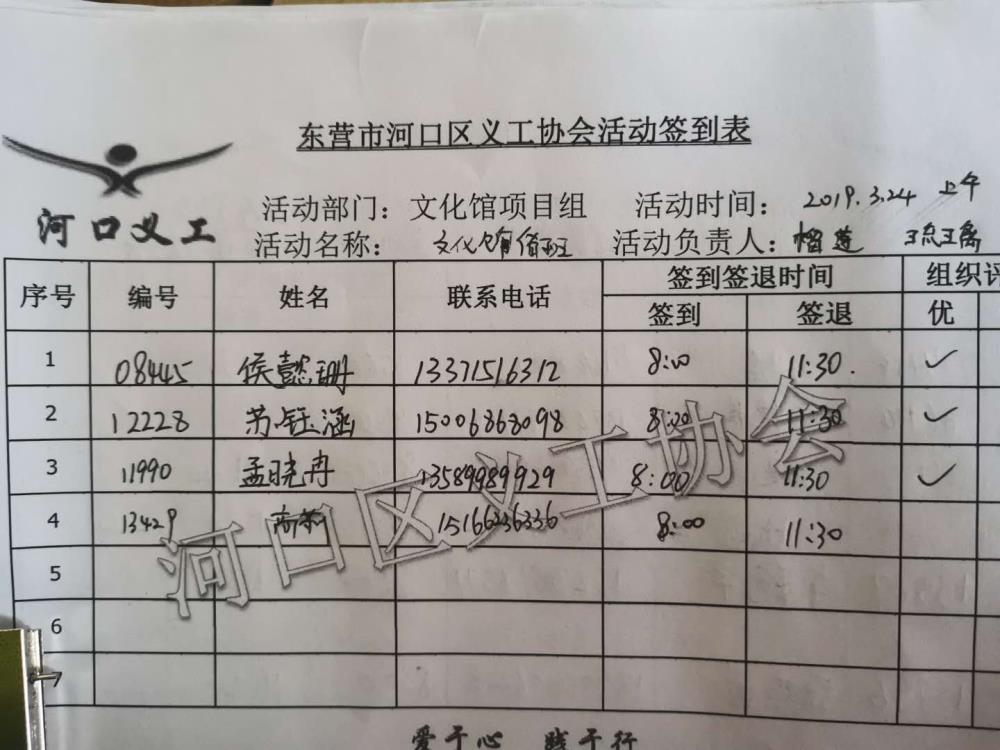 东营市河口区义工协会活动签到表
河口义工
活动部门：文化馆项目组 活动时间： 2019.3.24 上午
活动名称： 文化馆值班 活动负责人：榴莲 琉璃
序号 编号 姓名 联系电话 签到签退时间 组织评
签到 签退 优
1 08445 侯懿珊 13371516312 8:00 11:30. ✓
2 12228 苏钰涵 15006868098 8:00 11:30 ✓
3 11990 孟晓冉 13589989929 8:00 11:30 ✓
4 13429 高莉 15166236336 8:00 11:30
5
6
7
河口区义工协会
爱于心 践于行